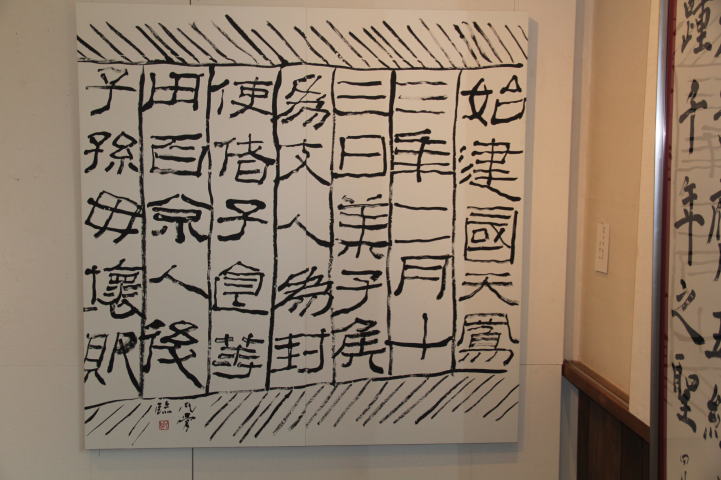 始建國天鳳
三年二月十
三日萊子侯
為支人為封
使偖子食等
用百余人後
子孫毋壞敗
臨
千年之聖